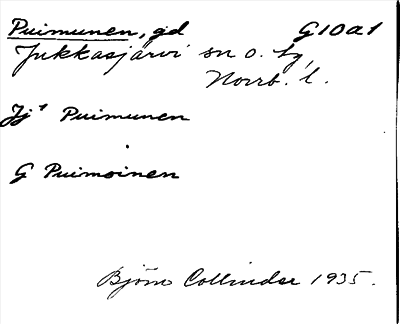 Puimunen, gd G10a1
Jukkasjärvi sn o. tg,
Norrb. l.
Jj¹ Puimunen
G Puimoinen
Björn Collinder 1935.